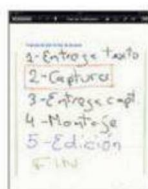 1-Entrega texto
2-Capturas
3-Entrega capt
4-Montaje
5-Edición
FIN